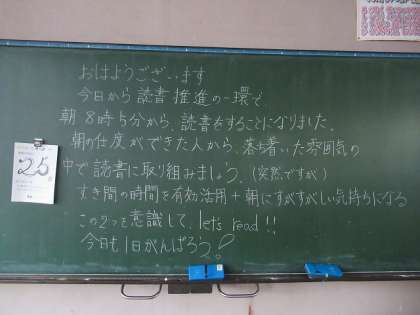 おはようございます
今日から読書推進の一環で
朝8時5分から、読書をすることになりました。
朝の仕度ができた人から、落ち着いた雰囲気の
中で読書に取り組みましょう。(突然ですが)
すき間の時間を有効活用+朝にすがすがしい気持ちになる
この2つを意識して、lets read!!
今日も1日がんばろう!
25